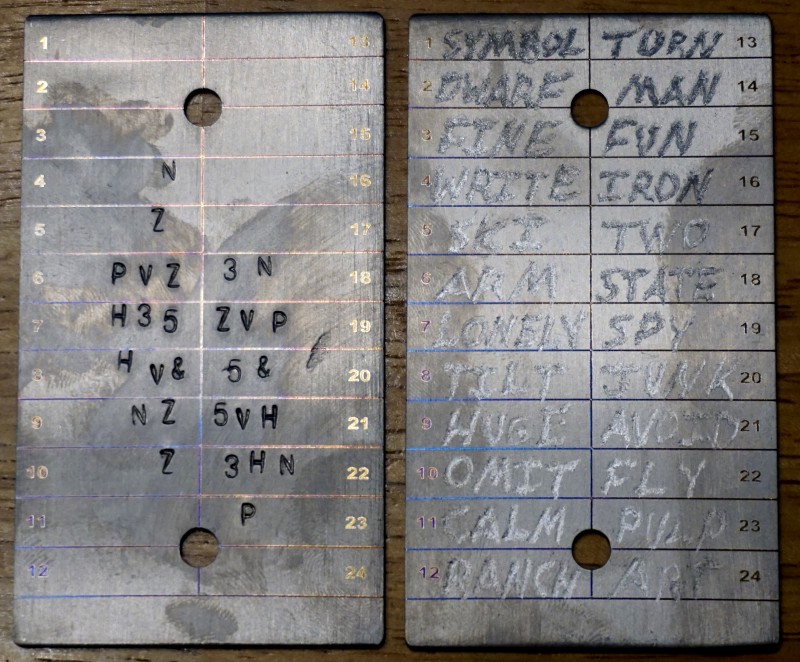 1 13
2 14
3 15
4 N 16
5 Z 17
6 PVZ 3N 18
7 H35 ZVP 19
8 HV& 5& 20
9 NZ 5VH 21
10 Z 3HN 22
11 P 23
12 24
1 SYMBOL TURN 13
2 DWARF MAN 14
3 FINE FUN 15
4 WRITE IRON 16
5 SKI TWO 17
6 ARM STATE 18
7 LONELY SPY 19
8 TILT JUNK 20
9 HUGE AVOID 21
10 OMIT FLY 22
11 CALM PULP 23
12 RANCH ART 24